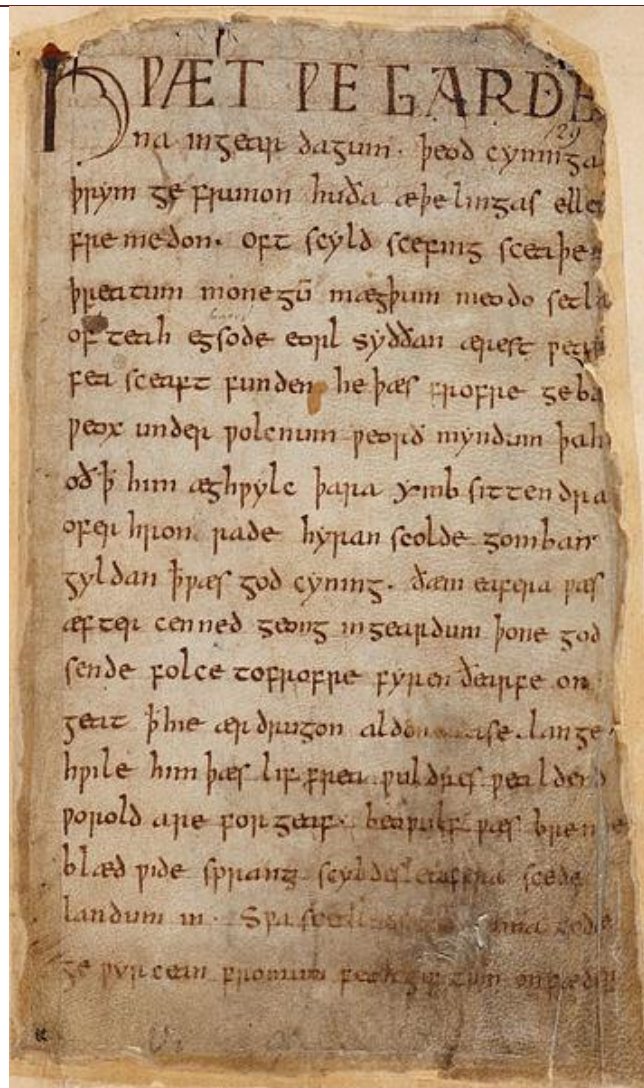 HǷÆT ǷE GARDE
129
na in gear dagum. þeod cyninga
þrym ge frunon hu ða æþelingas elle
fremedon. oft scyld scefing sceaþe
þreatum monegū mægþum meodo setla
of teah egsode eorl syððan ærest ƿear
fea sceaft funden he þæs frofre geba
ƿeox under ƿolcnum ƿeorð myndum þah
oð ꝥ him æghƿylc þara ymb sittendra
ofer hron rade hyran scolde gomban
gyldan ꝥ ƿæs god cyning. ðæm eafera ƿæs
æfter cenned geong in geardum þone god
sende folce to frofre fyren ðearfe on
geat ꝥ hie ær drugon aldor ase. lange
hƿile him þæs lif frea ƿuldres ƿealdend
ƿorold are for geaf. beoƿulf ƿæs breme
blæd ƿide sprang scyldes eafera scede
landum in. Sƿa gode
ge ƿyrcean fromum feoh giftum on fæder